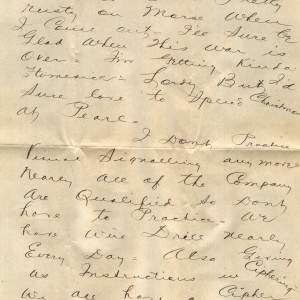 Pretty When
rusty on Morse When
I Come out. I'll Sure be
Glad When This War is
Over. I'm Getting Kinda
Homesick. Lordy But I'd
Sure love to Spend Christmas
At Pearl.
I Don't Practice
Visual Signalling any more
Nearly all of the Company
Are Qualified So Don't
have to Practice. We
have Wire Drill nearly
Every Day. Also Giving
us Instructions in Ciphering
We all have a Cipher